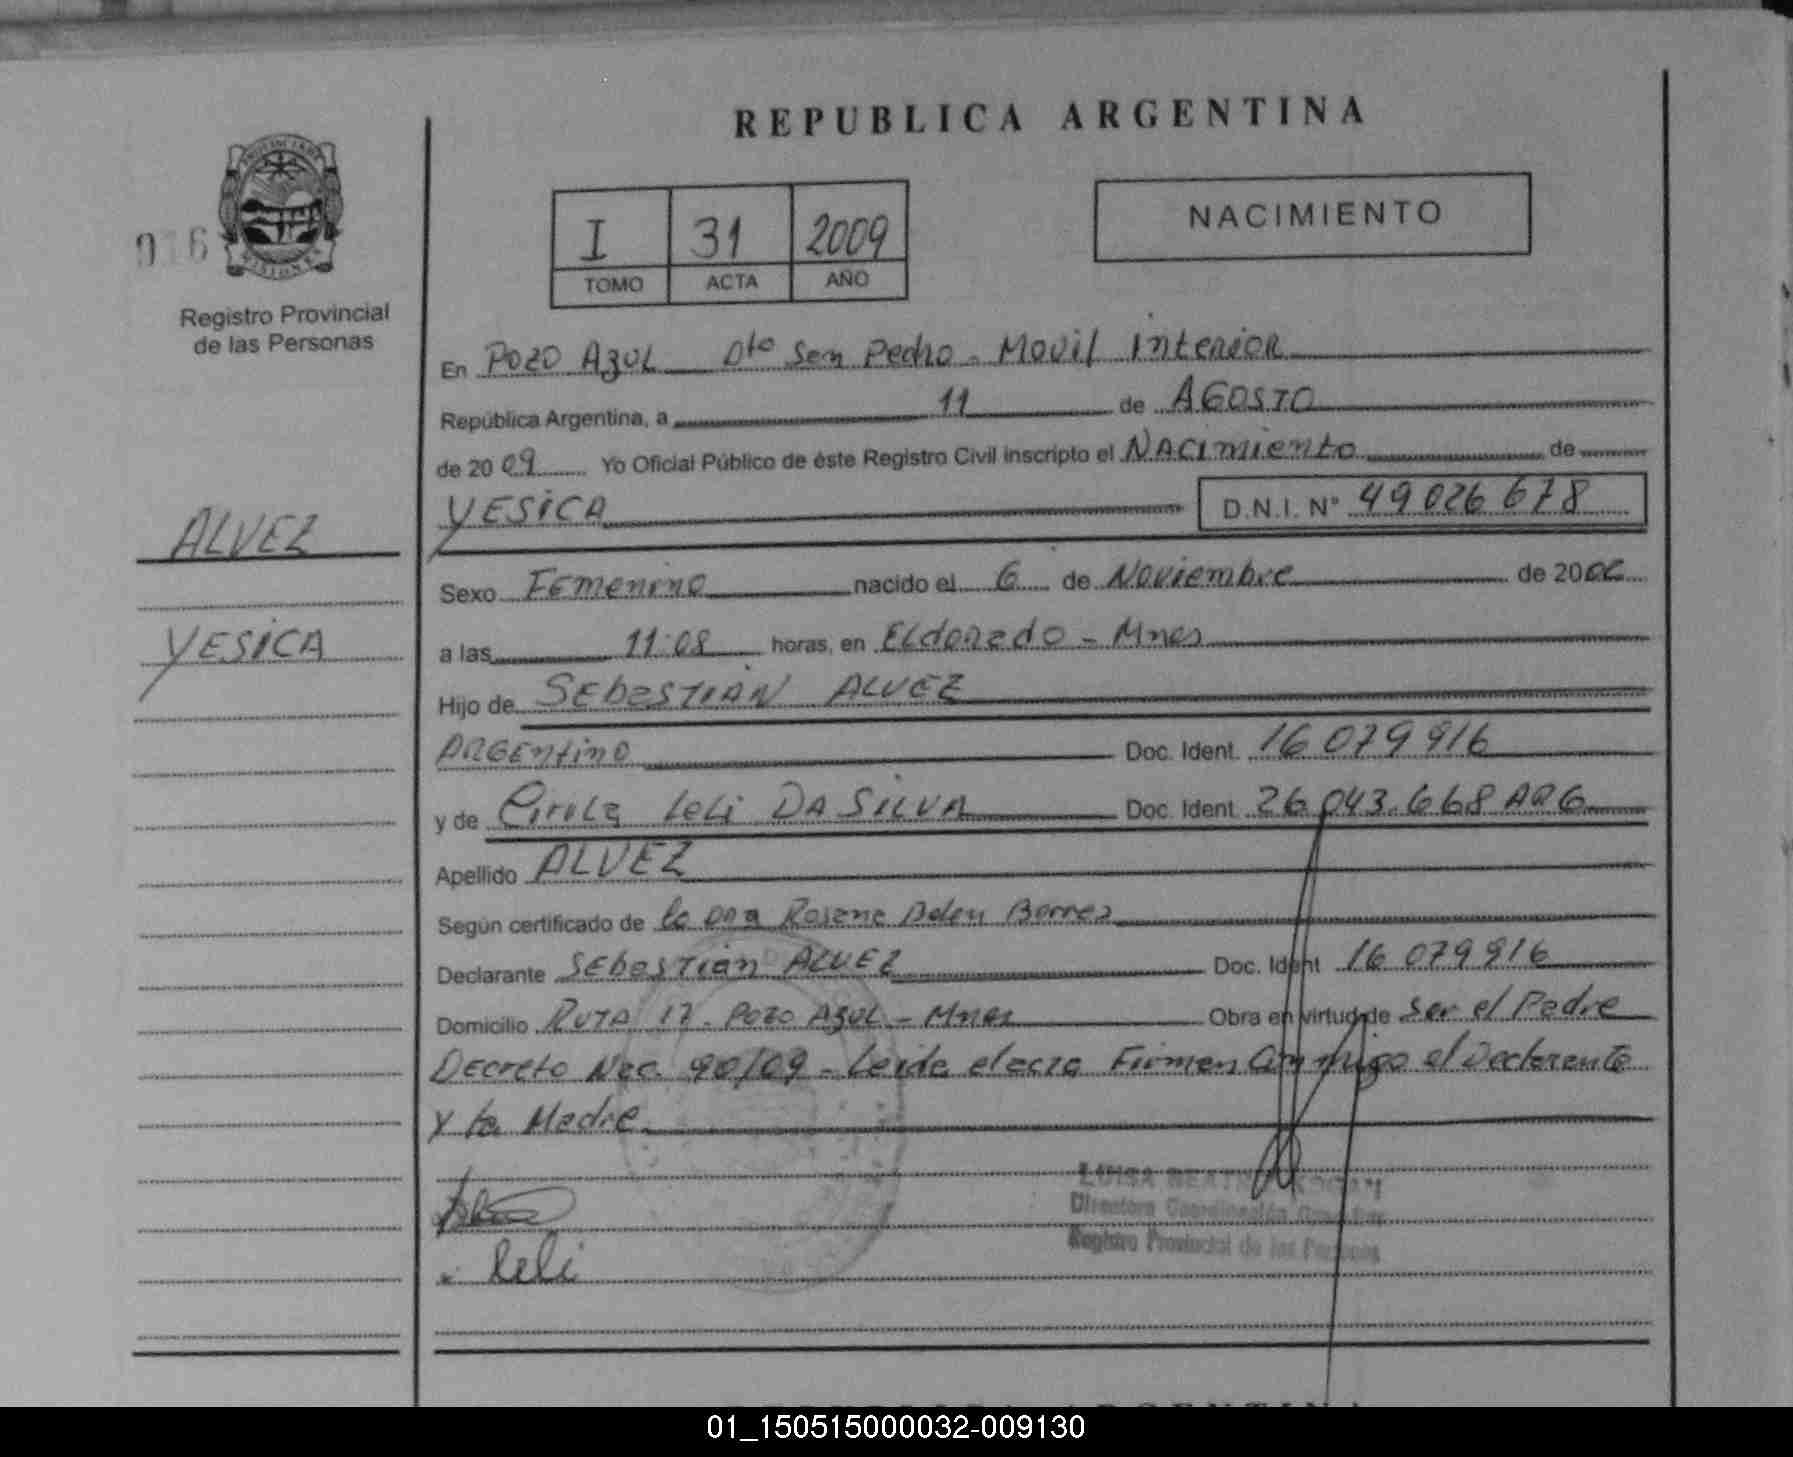 REPUBLICA ARGENTINA
016
Registro Provincial
de las Personas
I 31 2009
TOMO ACTA AÑO
NACIMIENTO
En POZO AZUL Dto San Pedro - Movil Interior
República Argentina, a 11 de AGOSTO
de 20 09 Yo Oficial Público de éste Registro Civil inscripto el NACIMIENTO de
YESICA D.N.I. N° 49 026 678
ALVEZ
YESICA
Sexo Femenino nacido el 6 de Noviembre de 2006
a las 11:08 horas, en ELdorado - Mnes
Hijo de SEbasTIAN ALVEZ
ARGENtino Doc. Ident. 16 079 916
y de Leli DA SILVA Doc. Ident. 26.043.668 ARG
Apellido ALVEZ
Según certificado de la Dra Belen
Declarante SEbasTian ALVEZ Doc. Ident 16 079 916
Domicilio RUTA 17 - POZO AZUL - Mnes Obra en virtud de Ser el Padre
Decreto Nac. 90/09 - Leida el acta Firman Conmigo el Declarante
y la Madre
Leli
LUISA BEATRIZ
Directora Coordinación
Registro Provincial de las Personas
REPUBLICA ARGENTINA
01_150515000032-009130